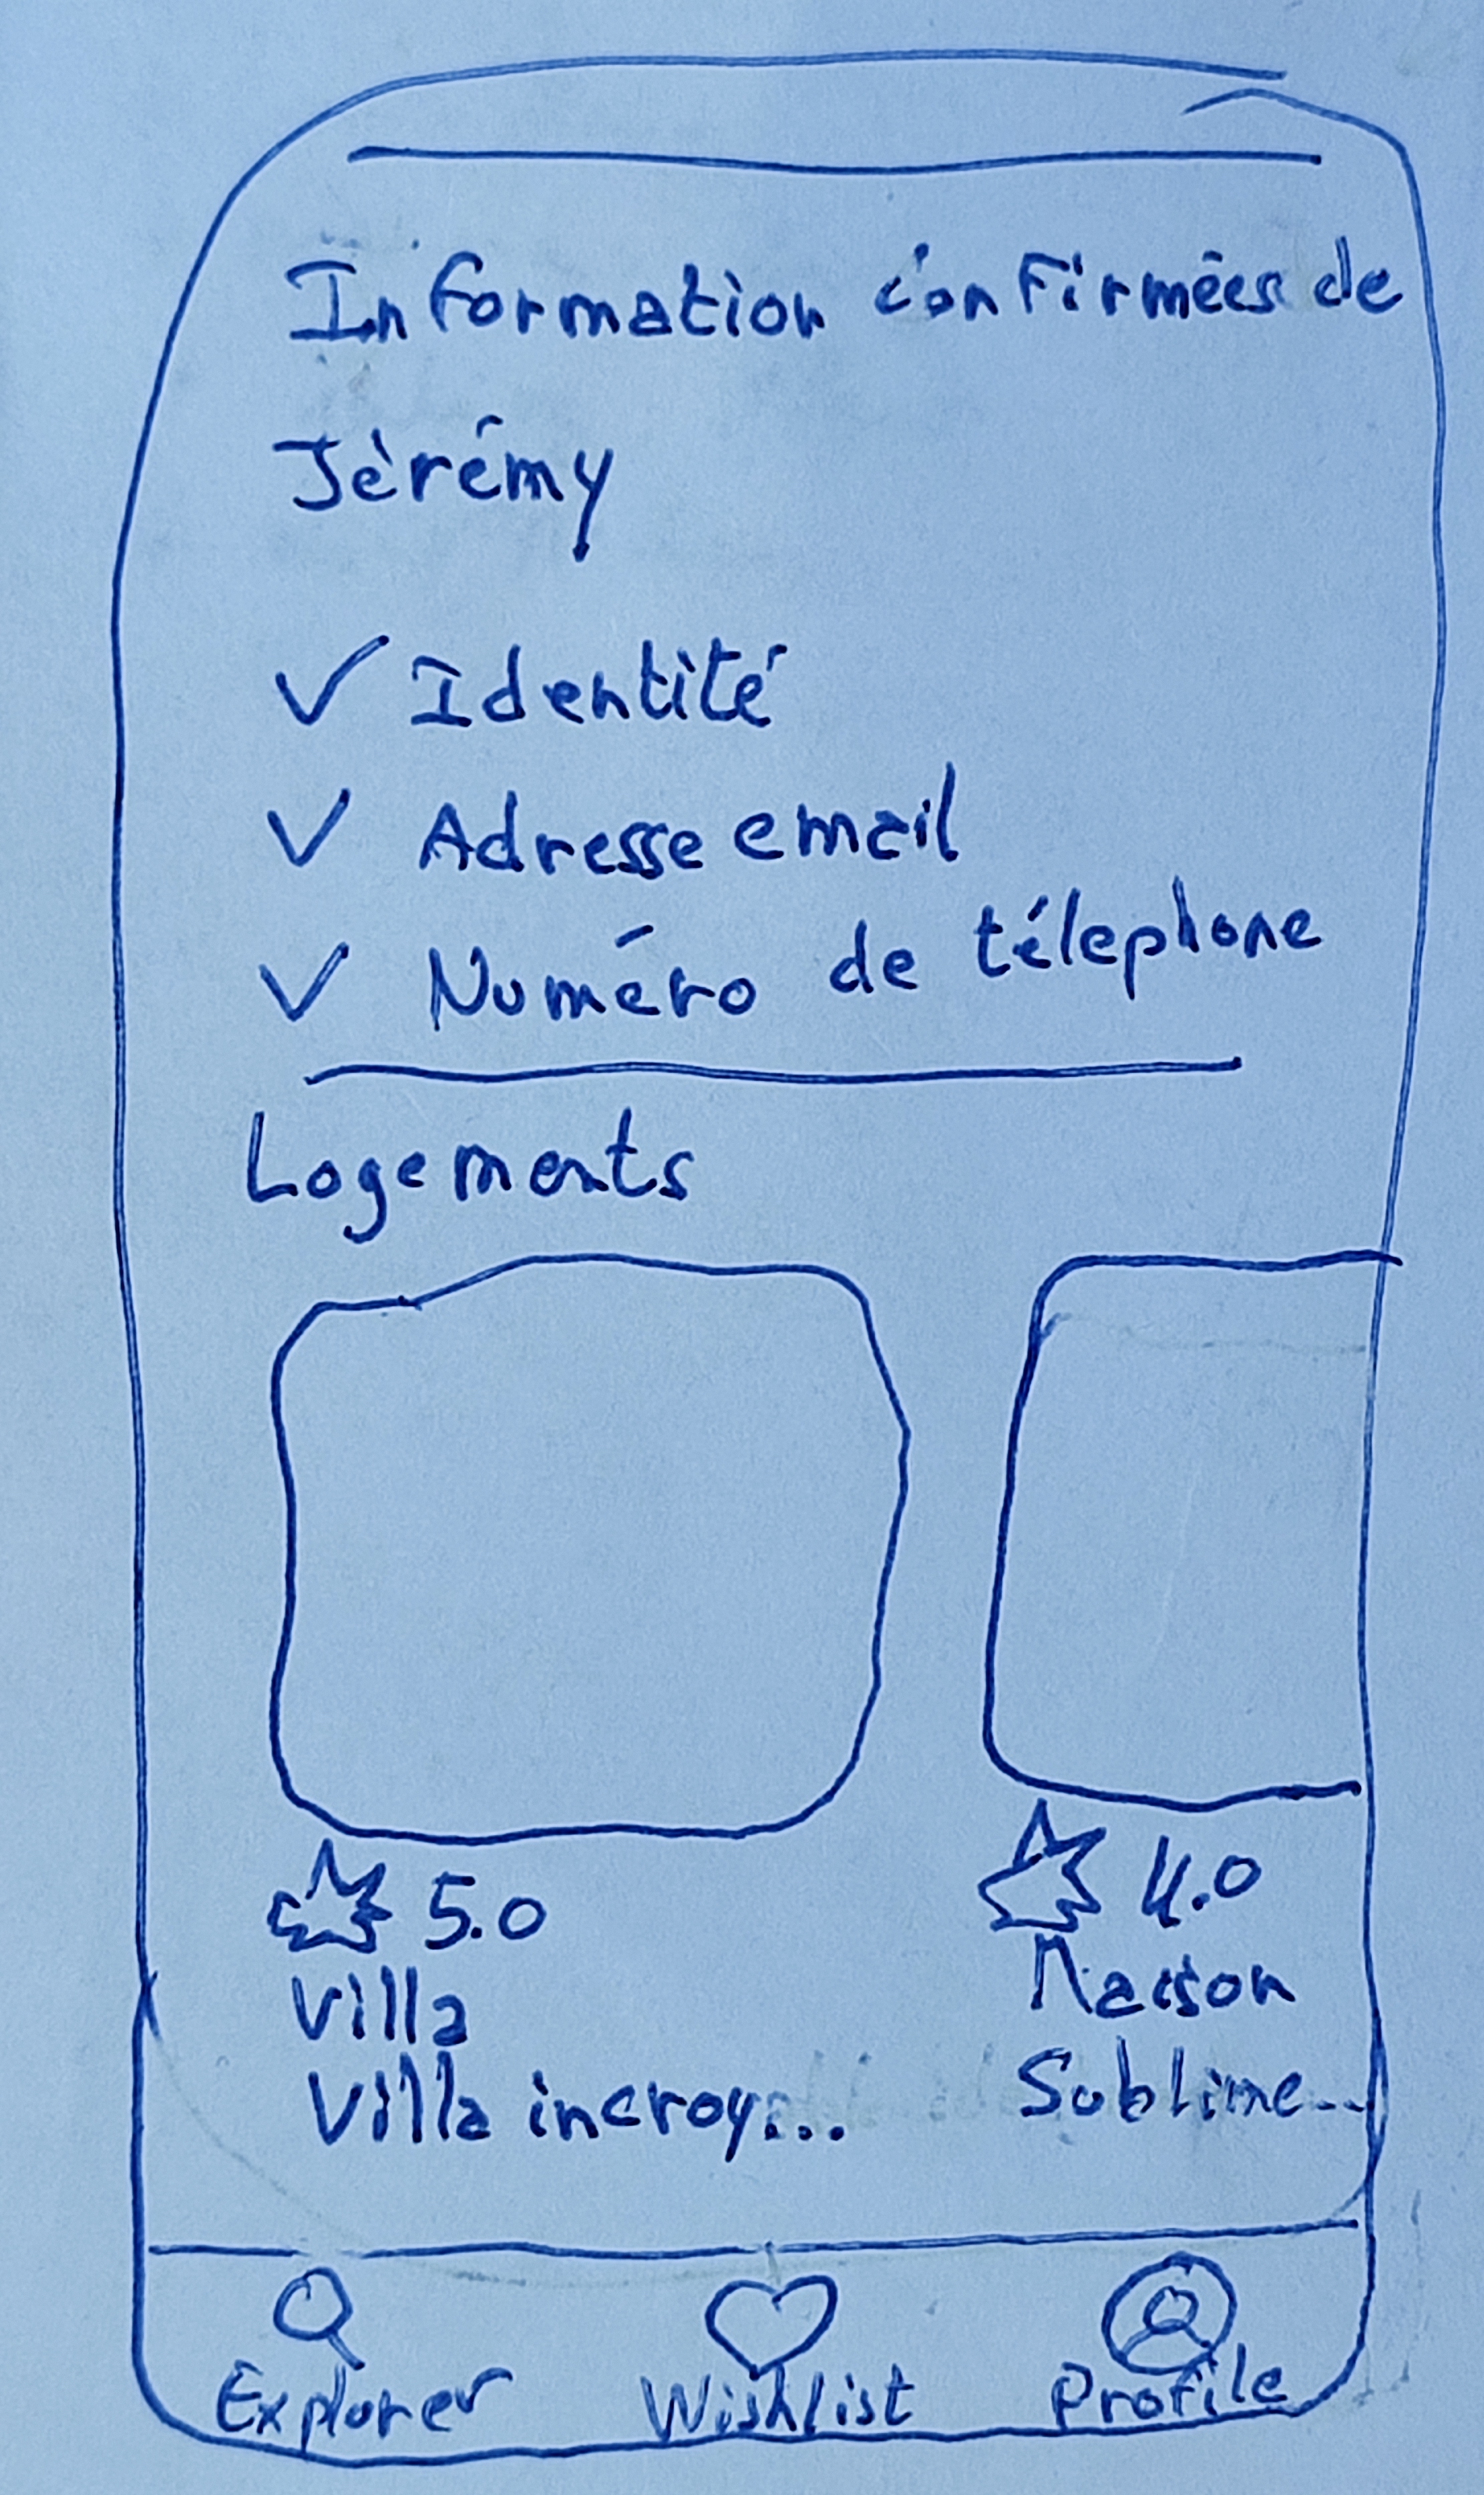 Information confirmées de
Jérémy
✓ Identité
✓ Adresse email
✓ Numéro de télephone
Logements
5.0
4.0
Villa
Maison
Villa incroy...
Sublime...
Explorer
Wishlist
Profile